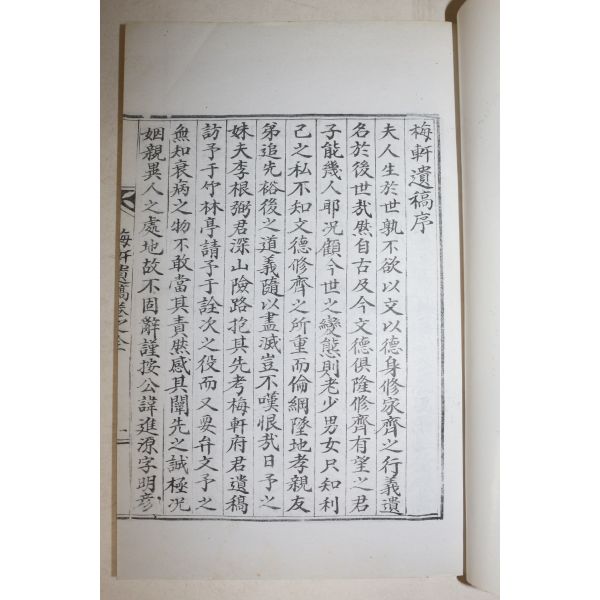 梅軒遺稿序
夫人生於世孰不欲以文以德身修家齊之行義遺
名於後世㦲然自古及今文德俱隆修齊有望之君
子能幾人耶况顧今世之變態則老少男女只知利
己之私不知文德修齊之所重而倫綱墜地孝親友
弟追先裕後之道義隨以盡滅豈不嘆恨㦲日予之
妹夫李根弼君深山險路抱其先考梅軒府君遺稿
訪予于竹林亭請予于詮次之役而又要弁文予之
無知衰病之物不敢當其責然感其闡先之誠極况
姻親異人之處地故不固辭謹按公諱進源字明彦
梅軒遺稿卷之全
一